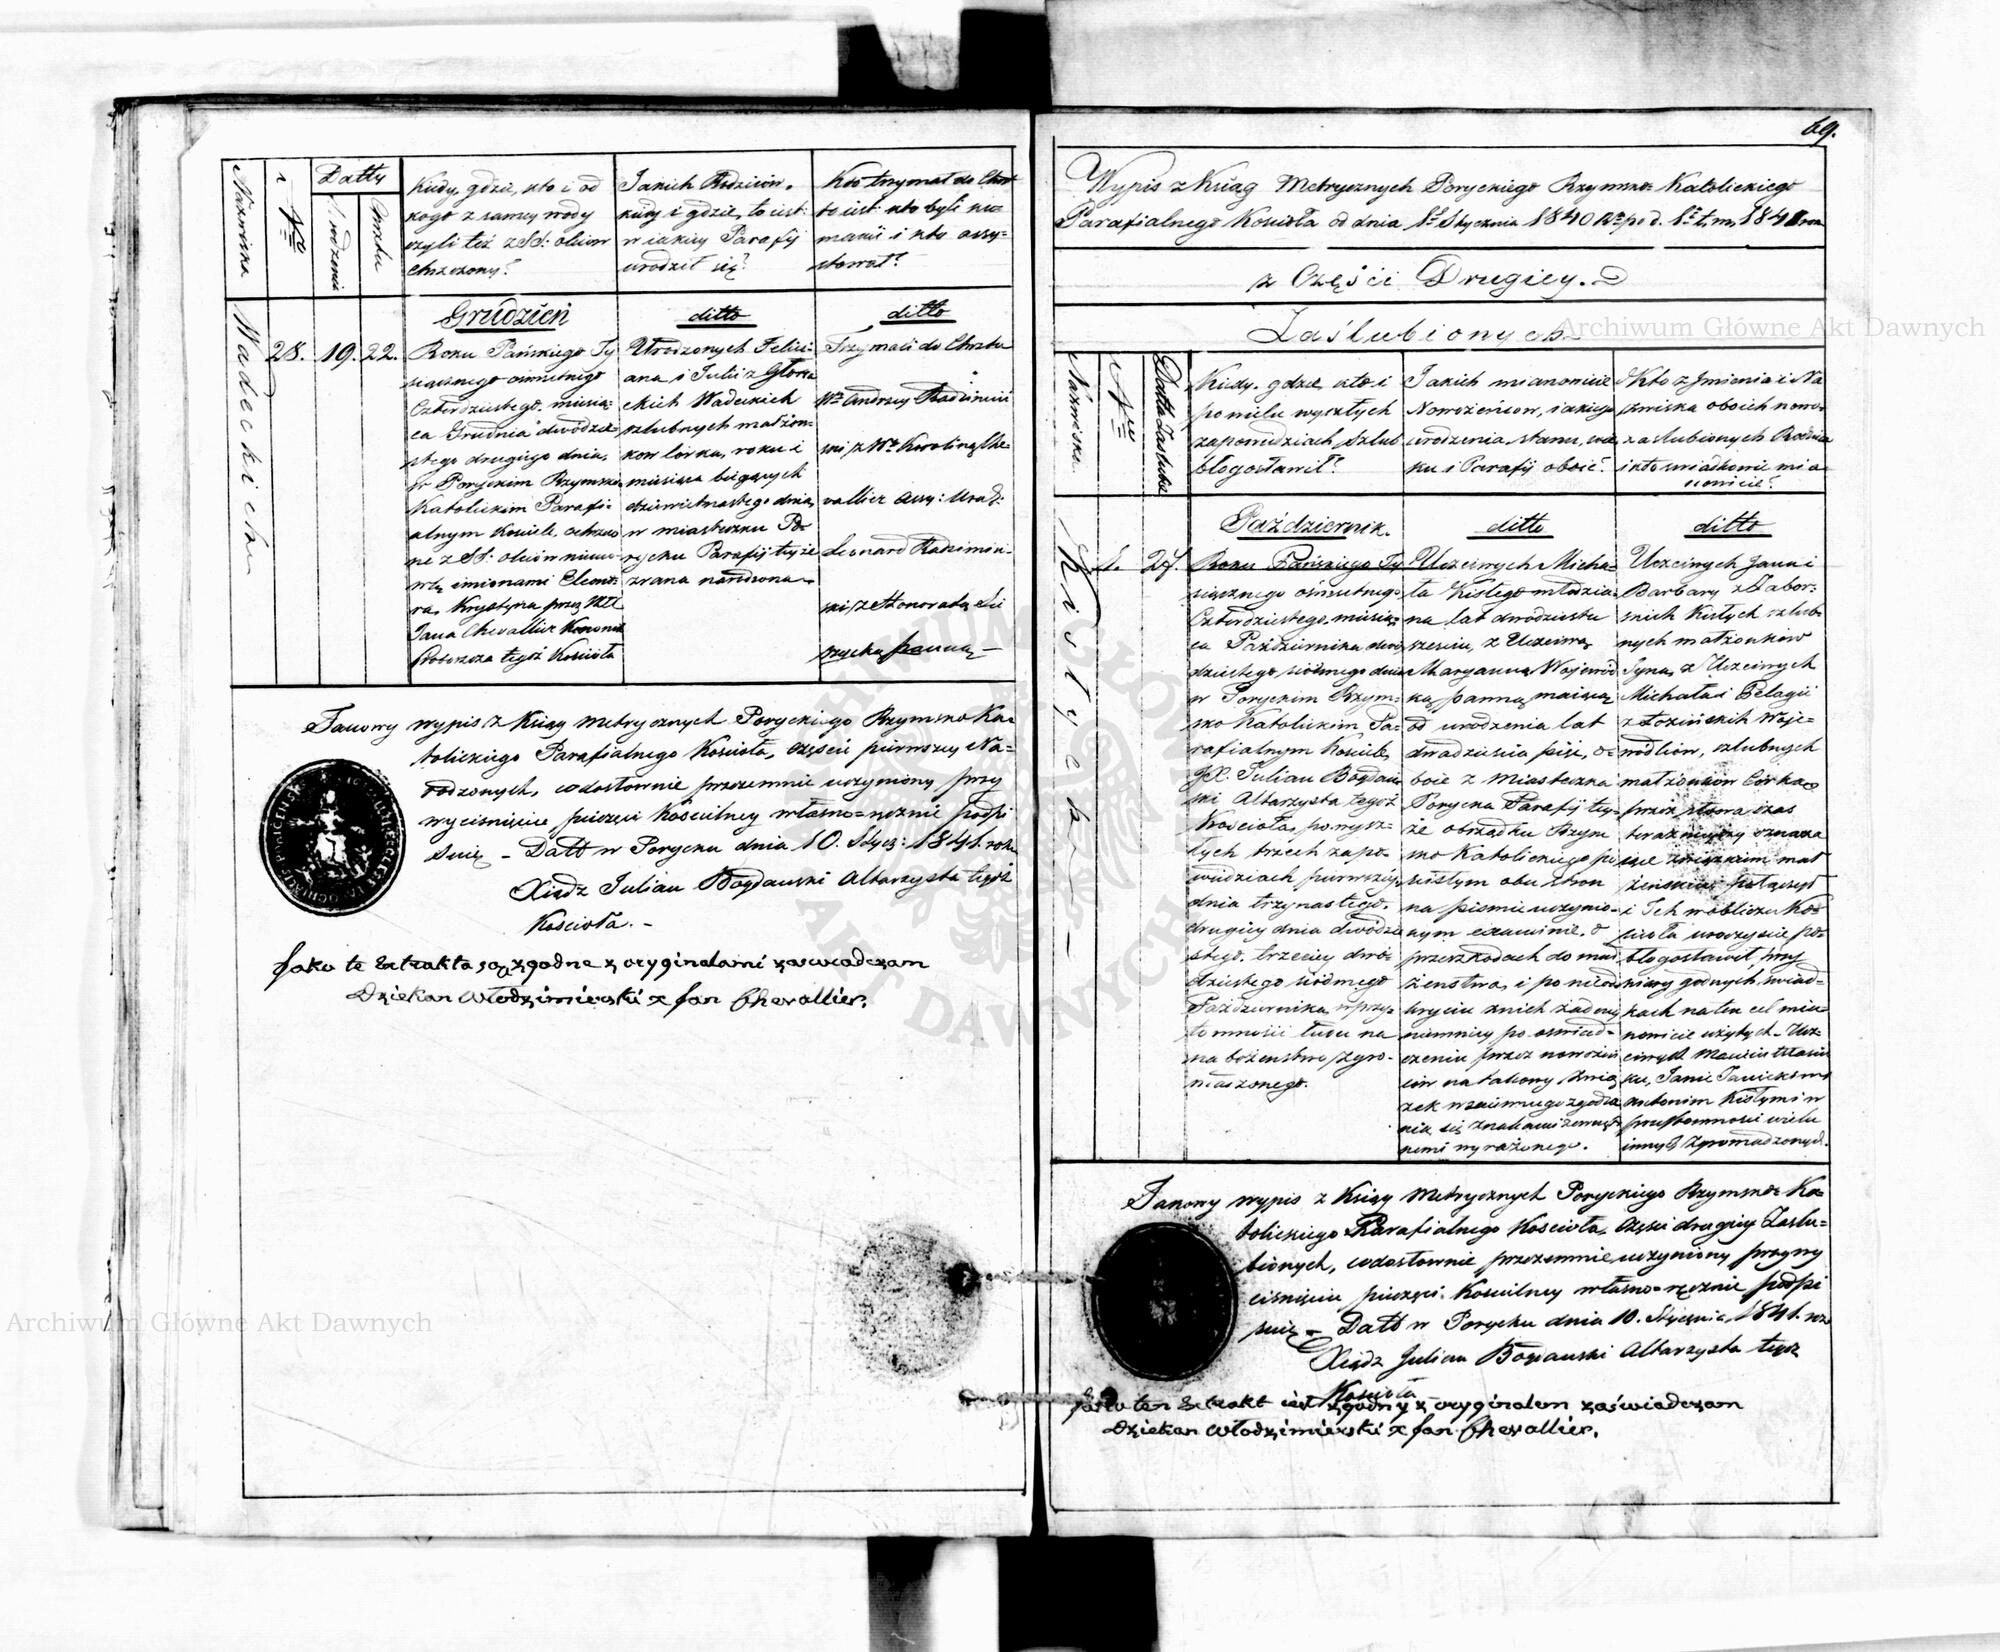 69.
Nazwiska
№
Datty
Urodzenia
Chrztu
Kiedy, gdzie, kto i od
kogo z samey wody
czyli też z SS: oleiow
chrzczony?
Jakich Rodziców,
kiedy i gdzie, to iest:
w iakiey Parafij
urodził się?
Kto trzymał do Chrztu
to iest: kto byli ku-
mami i kto assy-
stował?
Wadeckich
28.
19.
22.
Grudzień
Roku Pańskiego Ty
siącznego ośmsetnego
Czterdziestego, miesią-
ca Grudnia dwódzie-
stego drugiego dnia,
w Poryckim Rzymsko
Katolickim Parafi-
alnym Kościele, ochrzczo
na z SS: oleiów niemo-
wlę imionami Eleono-
ra, Krystyna przez
Jana Chevallier Kanonik
Proboszcza tegoż Kościoła
ditto
Urodzonych Felici-
ana i Julii z
Wadeckich
szlubnych małżon-
kow córka, roku i
miesiąca bieżących
dziewietnastego dnia,
w miasteczku Po-
rycku Parafij teyże
zrana narodzona.
ditto
Trzymali do Chrztu
Wny Andrzey
ski z Wną Karoliną Che-
vallier Assy: Urodz:
Leonard
ski z Honoratą
panną
Takowy wypis z Księg Metrycznych Poryckiego Rzymsko Ka-
tolickiego Parafialnego Kościoła, części pierwszey Na-
rodzonych, codosłownie przezemnie uczyniony przy
wyciśnięciu pieczęci Kościelney własno-ręcznie podpi
suię - Datt w Porycku dnia 10. Stycz: 1841. roku
Xiądz Julian Bogdański Altarzysta tegoż
Kościoła. -
Jako te Extrakta są zgodne z oryginalami zaswiadczam
Dziekan Włodzimierski x Jan Chevallier.
Wypis z Ksiąg Metrycznych Poryckiego Rzymsko Katolickiego
Parafialnego Kościoła od dnia 1go Stycznia 1840 Ru po d. 1y t. m. 1841 roku
z Części Drugiey.
Zaślubionych
Nazwiska
№
Datta Zaślubi
Kiedy, gdzie, kto i
po wielu wyszłych
zapowiedziach szlub
błogosławił?
Jakich mianowicie
Nowożeńców, iakiego
urodzenia, stanu, wie
ku i Parafij oboie?
Kto z Jmienia i Na
zwiska oboich nowo-
zaslubionych Rodzice
i kto swiadkowie mia
nowicie?
Kistych
1.
27.
Październik.
Roku Pańskiego Ty
siącznego ośmsetnego
Czterdziestego, miesią-
ca Października dwó
dziestego siódmego dnia
w Poryckim Rzym-
sko Katolickim Pa-
rafialnym Kościele,
JX. Julian Bogdań
ski Altarzysta tegoż
Kościoła, po wysz-
łych trzech zapo-
wiedziach pierwszey
dnia trzynastego,
drugiey dnia dwódzie
stego, trzeciey dwó-
dziestego siódmego
Października, w przy-
tomności ludu na
nabożeństwo zgro-
madzonego.
ditto
Uczciwych Micha-
ła Kistego młodzia-
na lat dwodziestu
sześciu, z Uczciwą
Maryanną Wojewód
ką panną, maiącą
od urodzenia lat
dwadzieścia pięc, o-
boie z Miasteczka
Porycka Parafij tey-
że obrządku Rzym
sko Katolickiego po
ścisłym obu stron
na pismie uczynio-
nym examinie, o
przeszkodach do mał
żeństwa, i po nieod-
kryciu z nich żadney
niemniey po oswiad-
czeniu przez nowożeń
ców na takowy zwią
zek wzaiemnego zgodze
nia się znakami zewnętrz
nemi wyrażonego.
ditto
Uczciwych Jana i
Barbary z Zabor-
skich Kistych szlub-
nych małżonków
Syna, z Uczciwych
Michała i Pelagii
z Łozińskich Woje-
wodków, szlubnych
małżonków Córka
małżeńskim połączył
i Ich w obliczu Ko-
ścioła uroczyscie po-
błogosławił, przy
wiary godnych świad-
kach na ten cel mia-
nowicie użytych - Ucz-
ciwych
Antonim Kistym i w
przytomności wielu
innych zgromadzonych.
Takowy wypis z Księg Metrycznych Poryckiego Rzymsko Ka-
tolickiego Parafialnego Kościoła, części drugiey Zaslu-
bionych, codosłownie przezemnie uczyniony przy wy
ciśnięciu pieczęci Kościelney własno-ręcznie podpi
suię - Datt w Porycku dnia 10. Stycznia 1841. ro
Xiądz Julian Bogdański Altarzysta tegoż
Kościoła
Jako ten Extrakt iest zgodny z oryginalem zaświadczam
Dziekan Włodzimierski x Jan Chevallier.
Archiwum Główne Akt Dawnych
Archiwum Główne Akt Dawnych
ARCHIWUM GŁÓWNE
AKT DAWNYCH